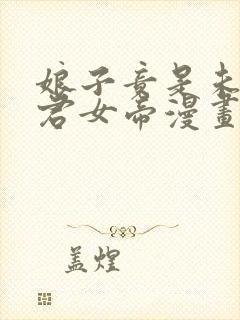 娘子竟是未
君女帝漫畫
盖煌